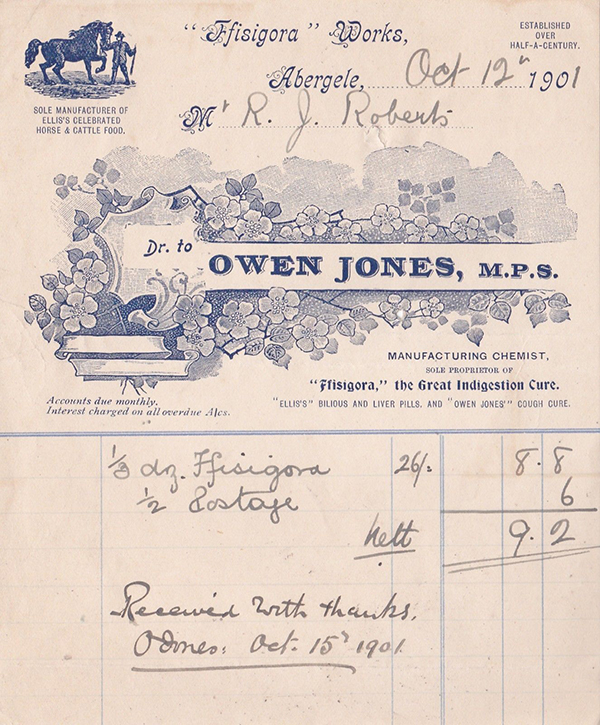 "Ffisigora" Works,
ESTABLISHED
OVER
HALF-A-CENTURY.
Abergele, Oct 12th 1901
SOLE MANUFACTURER OF
ELLIS'S CELEBRATED
HORSE & CATTLE FOOD.
Mr R. J. Roberts
Dr. to
OWEN JONES, M.P.S.
MANUFACTURING CHEMIST,
SOLE PROPRIETOR OF
"Ffisigora," the Great Indigestion Cure.
"ELLIS'S" BILIOUS AND LIVER PILLS. AND "OWEN JONES'" COUGH CURE.
Accounts due monthly.
Interest charged on all overdue A/cs.
1/3 dz. Ffisigora 26/- 8.8
1/2 Postage 6
Nett 9.2
Received With thanks.
OJones: Oct. 15th 1901